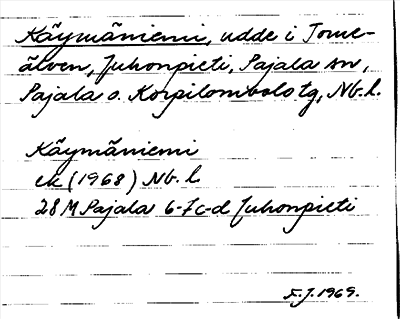 Käymäniemi, udde i Torne-
älven, Juhonpieti, Pajala sn,
Pajala o. Korpilombolo tg, Nb. l.
Käymäniemi
ek (1968) Nb. l.
28 M Pajala 6-7c-d Juhonpieti
F.J. 1969.